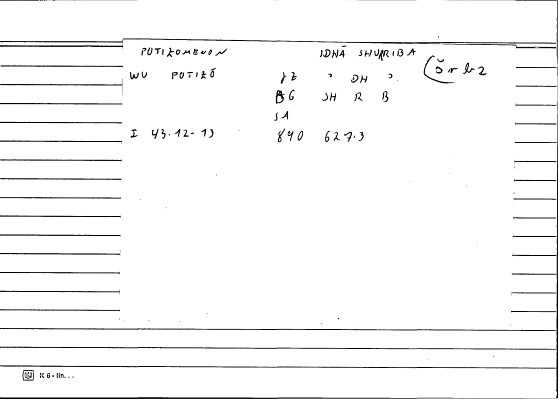 POTIZOMENON IDHĀ SHURIBA (š r b 2
WU POTIZŌ GE ' DH '
BG SH R B
SA
I 43.12-13 840 627.3
K 6 - lin. . .